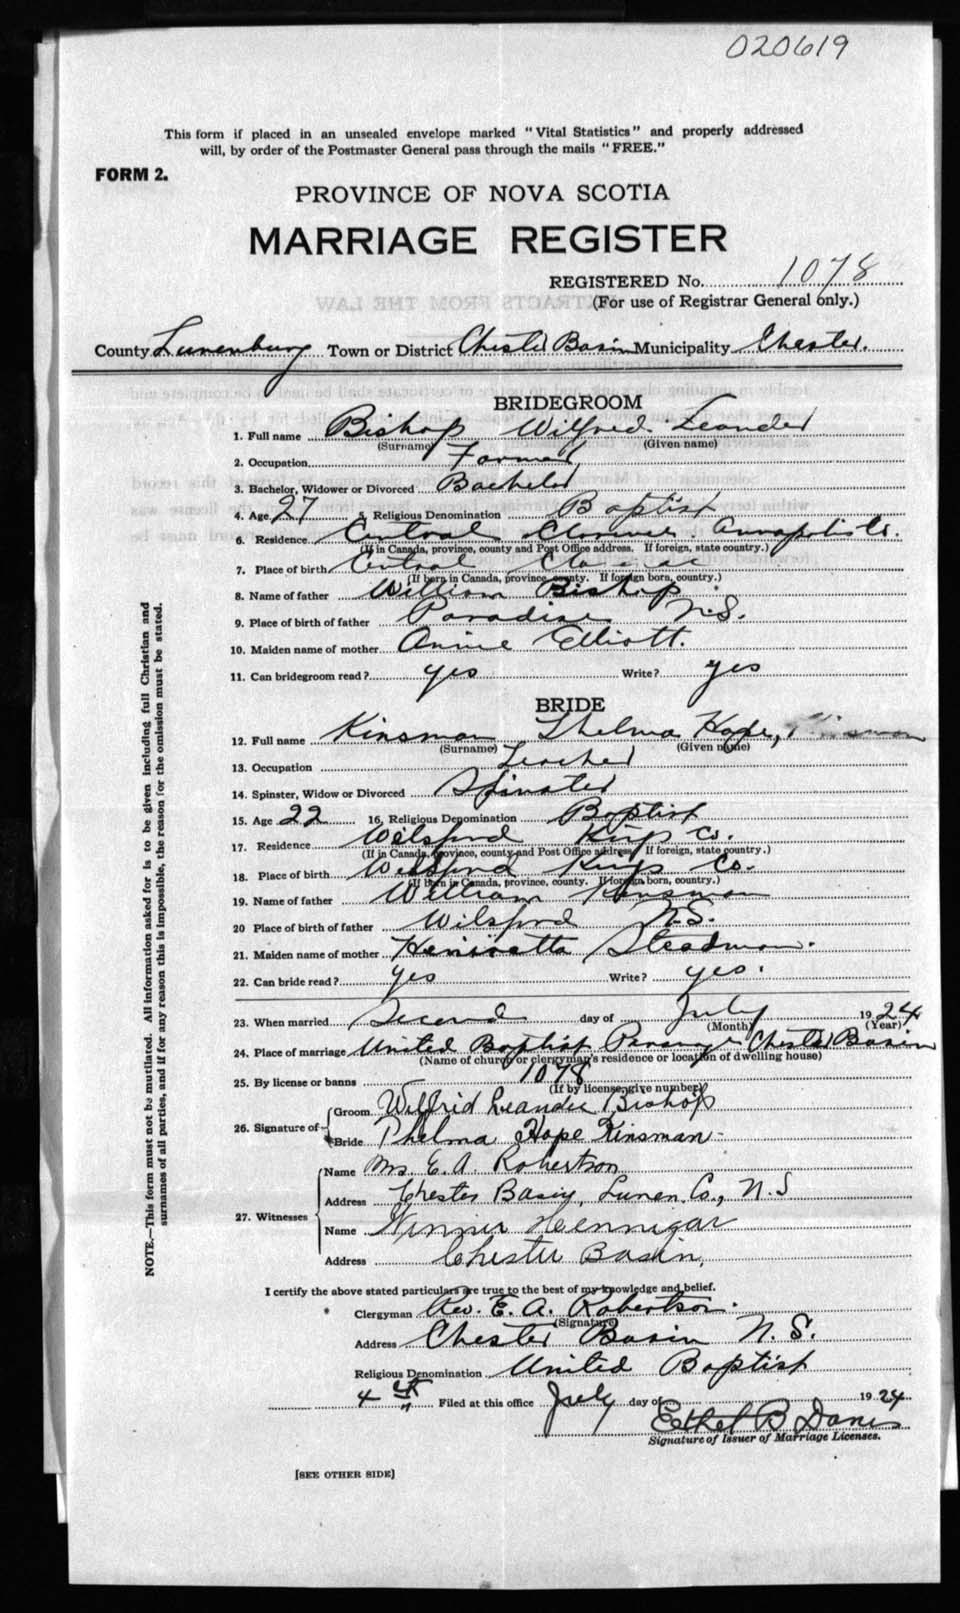 020619
This form if placed in an unsealed envelope marked "Vital Statistics" and properly addressed
will, by order of the Postmaster General pass through the mails "FREE."
FORM 2.
PROVINCE OF NOVA SCOTIA
MARRIAGE REGISTER
REGISTERED No. 1078
(For use of Registrar General only.)
County Lunenburg Town or District Chester Basin Municipality Chester.
BRIDEGROOM
1. Full name Bishop Wilfred Leander
(Surname) (Given name)
2. Occupation Farmer
3. Bachelor, Widower or Divorced Bachelor
4. Age 27 5. Religious Denomination Baptist
6. Residence Central Clarence Annapolis Co.
(If in Canada, province, county and Post Office address. If foreign, state country.)
7. Place of birth Central Clarence
(If born in Canada, province, county. If foreign born, country.)
8. Name of father William Bishop
9. Place of birth of father Paradise N.S.
10. Maiden name of mother Annie Elliott.
11. Can bridegroom read? yes Write? yes
BRIDE
12. Full name Kinsman Thelma Hope, Kinsman
(Surname) (Given name)
13. Occupation Teacher
14. Spinster, Widow or Divorced Spinster
15. Age 22 16. Religious Denomination Baptist
17. Residence Welsford Kings Co.
(If in Canada, province, county and Post Office address. If foreign, state country.)
18. Place of birth Welsford Kings Co.
(If born in Canada, province, county. If foreign born, country.)
19. Name of father William Kinsman
20 Place of birth of father Wilsford N.S.
21. Maiden name of mother Henrietta Steadman.
22. Can bride read? yes Write? yes.
23. When married Second day of July 1924
(Month) (Year)
24. Place of marriage United Baptist Parsonage Chester Basin
(Name of church or clergyman's residence or location of dwelling house)
25. By license or banns 1078
(If by license, give number)
26. Signature of Groom Wilfrid Leander Bishop
Bride Thelma Hope Kinsman
27. Witnesses Name Mrs E. A. Robertson
Address Chester Basin, Lunen. Co., N.S
Name Winnie Hennigar
Address Chester Basin,
I certify the above stated particulars are true to the best of my knowledge and belief.
Clergyman Rev. E. A. Robertson.
(Signature)
Address Chester Basin N.S.
Religious Denomination United Baptist
4th Filed at this office July day of 1924
Ethel B
Signature of Issuer of Marriage Licenses.
[SEE OTHER SIDE]
NOTE.—This form must not be mutilated. All information asked for is to be given including full Christian and
surnames of all parties, and if for any reason this is impossible, the reason for the omission must be stated.